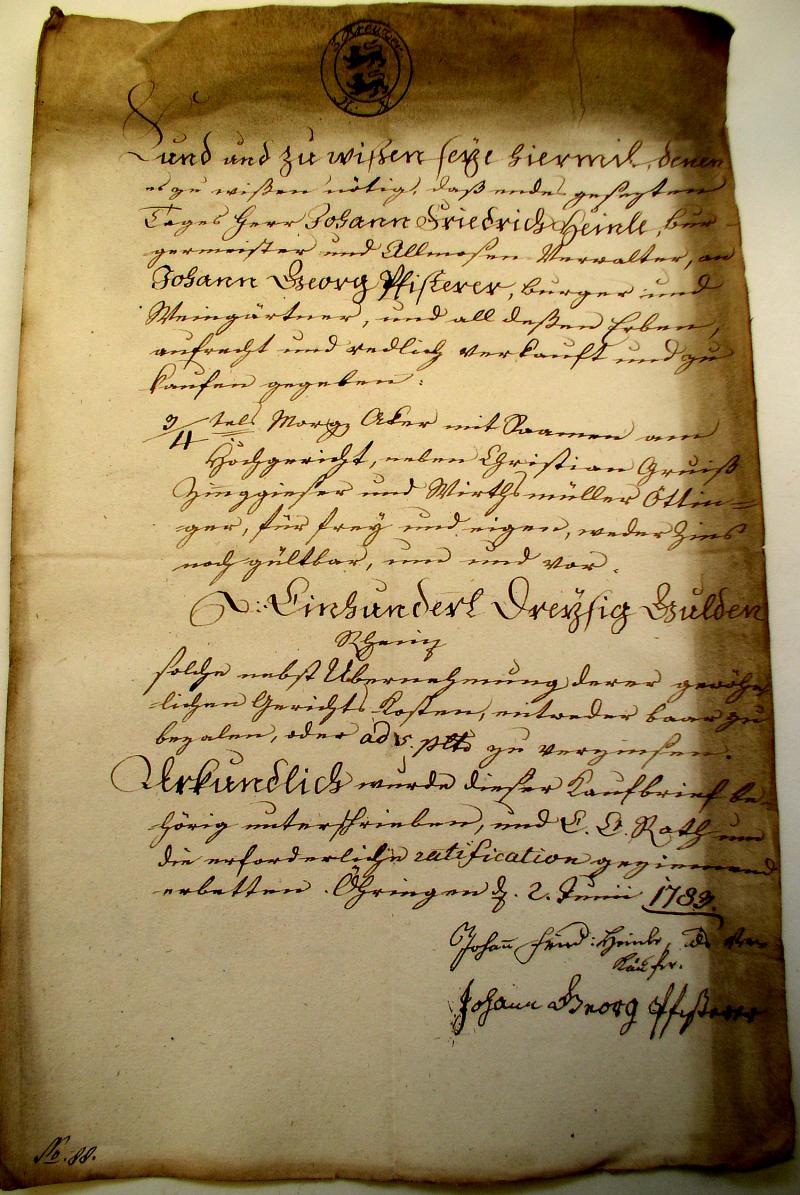 3 Kreuzer
Kund und zu wißen seye hiermit, denen
es zu wißen nötig, daß endes gesezten
Tages Herr Johann Friedrich Heinle, bur-
germeister und Allmosen Verwalter, an
Johann Georg Pfisterer, burger und
Weingärtner, und all deßen Erben,
aufrecht und redlich verkauft und zu
kaufen gegeben:
3/4 tels Morg Aker mit Saamen am
Hochgericht, neben Christian Gruiß
Zinggieser und Wirthsmüller Ottin=
ger, für frey und eigen, weder Zins
noch gültbar, um und vor.
Einhundert Dreyßig Gulden
Rhein
solche nebst Übernehmung derer gewöhn
lichen Gerichts Kosten, entweder baar zu
bezalen, oder ad 5. pCto zu verzinsen.
Urkundlich wurde dieser Kaufbrief be-
hörig unterschrieben, und E. E. Rath um
die erforderliche ratification geziemend
erbetten. Öhringen d. 2. Junii 1783.
Johann Frid: Heinle, als Ver-
käufer.
Johann Georg Pfisterer
No. 88.